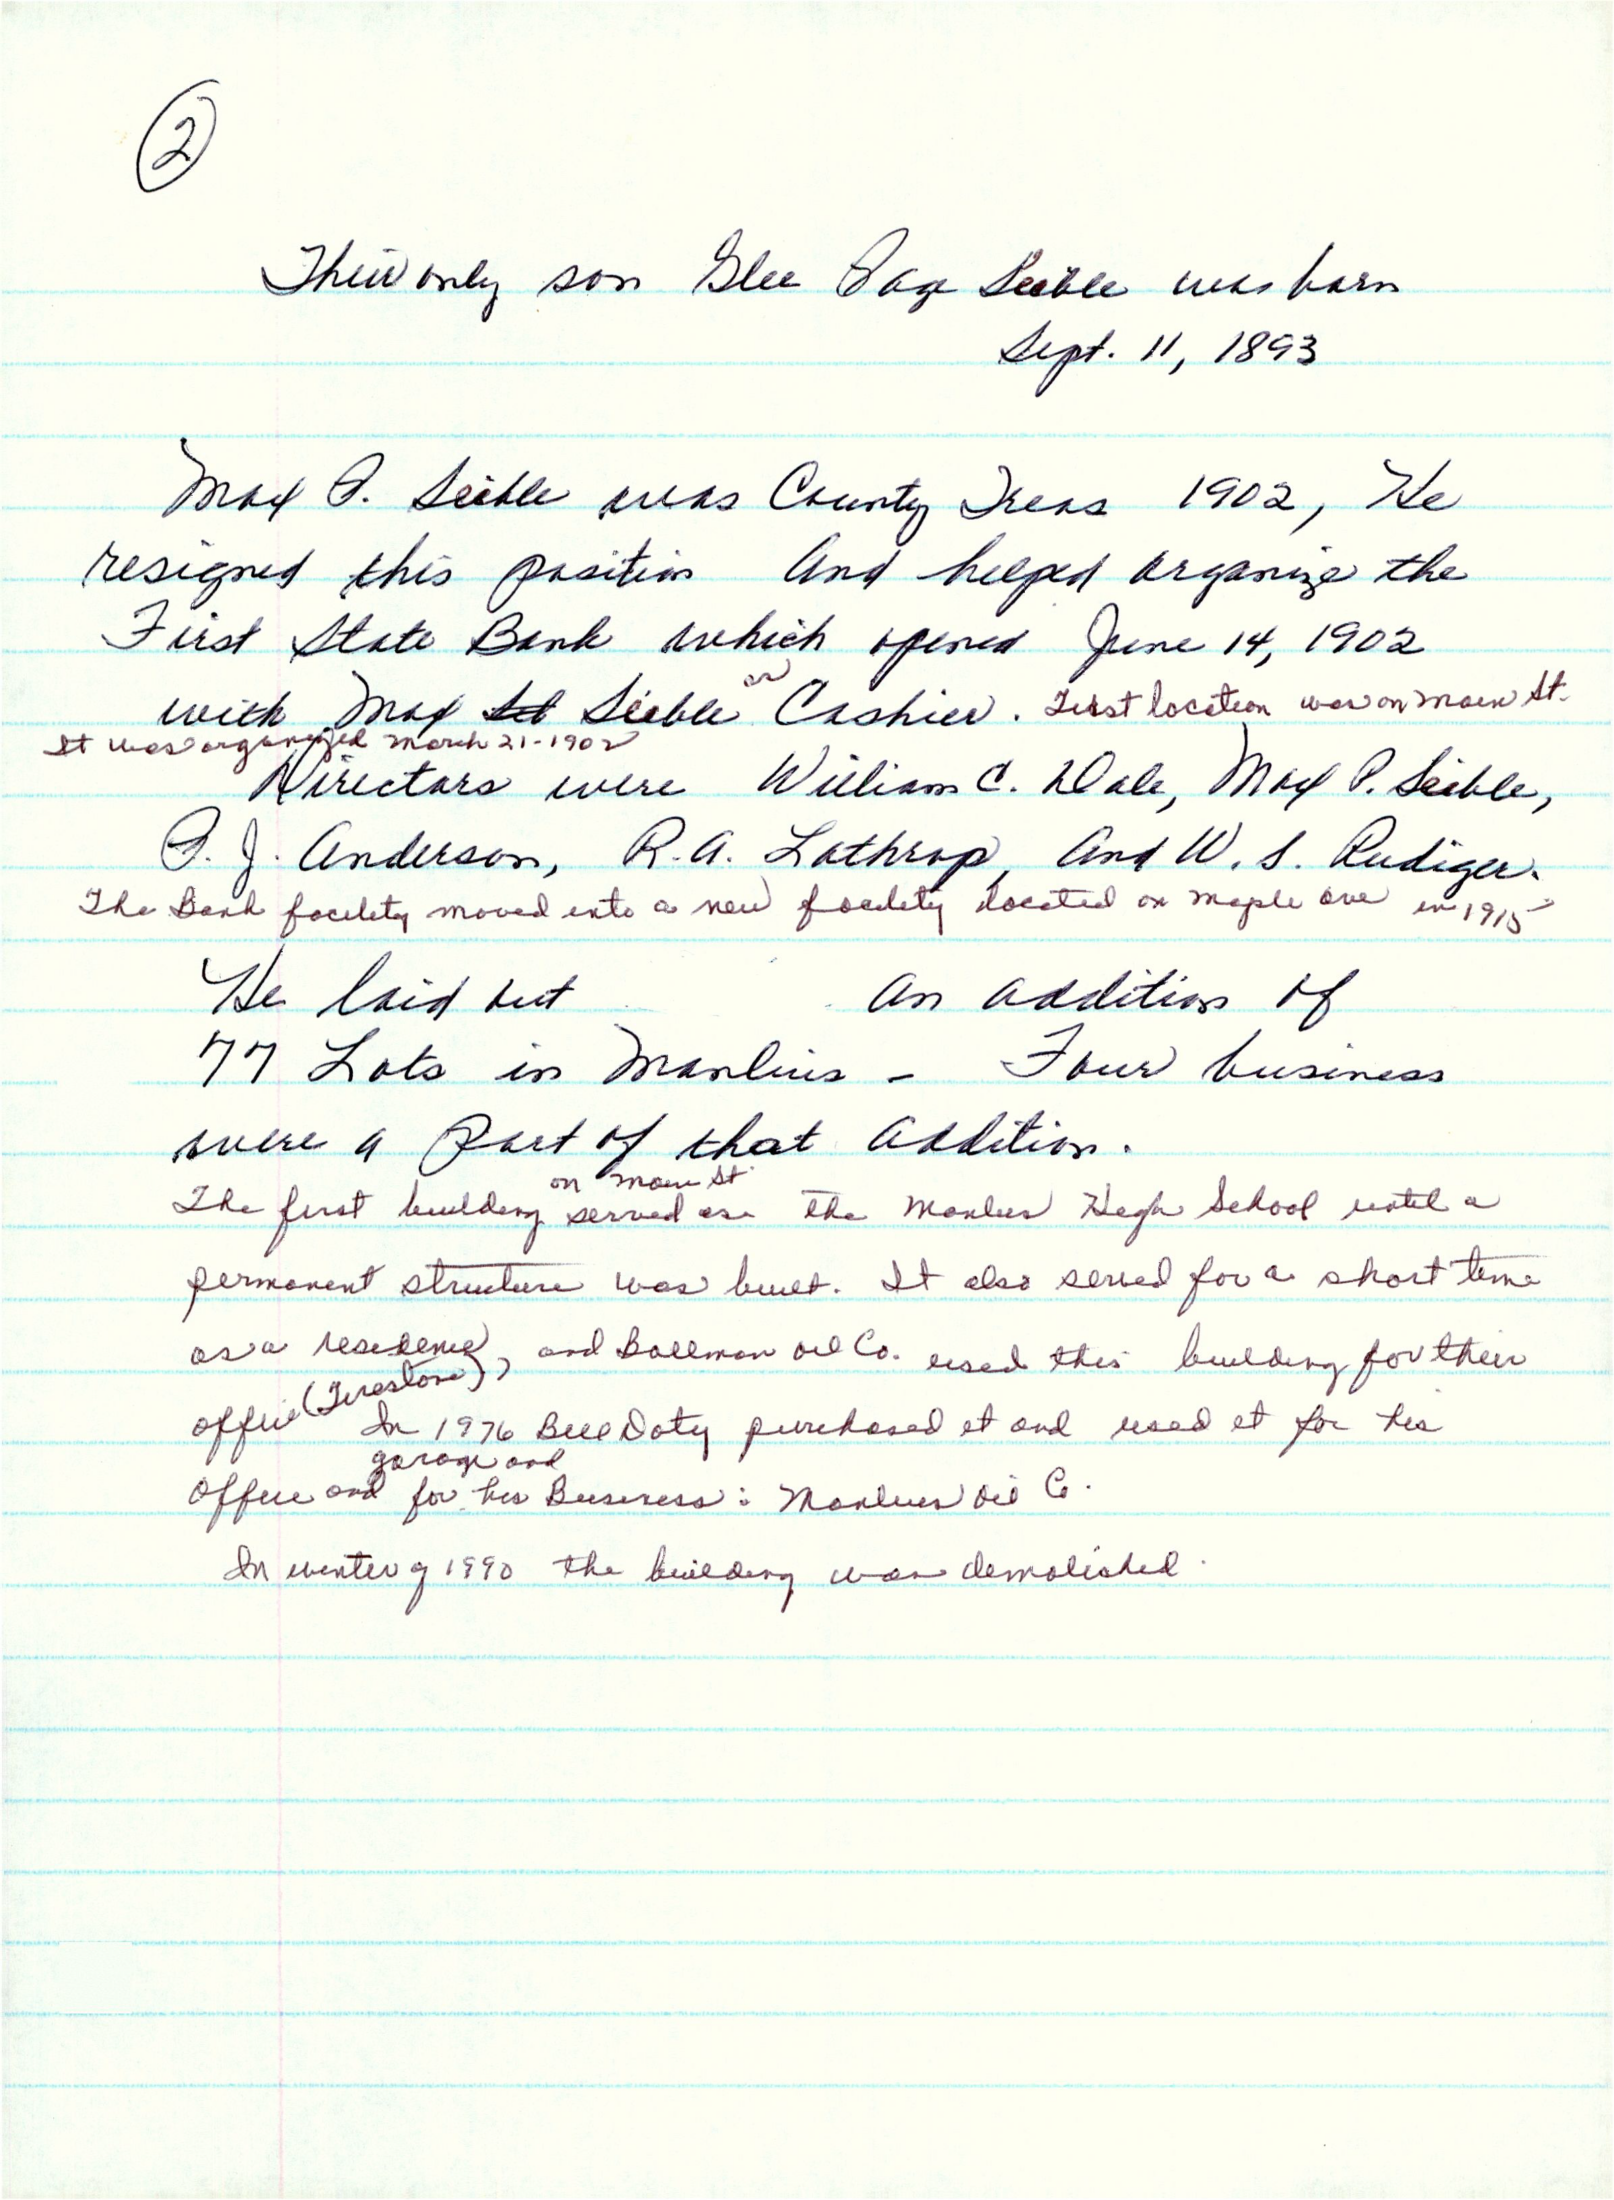 2
Their only son Glee Page Seible was born
Sept. 11, 1893
Max P. Seible was County Treas 1902, He
resigned this position And helped organize the
First State Bank which opened June 14, 1902
with Max Seible as Cashier. First location was on Main St.
It was organized March 21-1902
Directors were William C. Dale, Max P. Seible,
P. J. Anderson, R.A. Lathrop, And W. S. Rudiger.
The Bank facility moved into a new facility located on Maple Ave in 1915
He laid out An addition of
77 Lots in Manlius - Four business
were a Part of that Addition.
on Main St
The first building served as the Manlius High School until a
permanent structure was built. It also served for a short time
as a residence, and Bollman Oil Co. used this building for their
office (Firestone), In 1976 Bill Doty purchased it and used it for his
garage and
Office and for his Business: Manlius Oil Co.
In winter of 1990 the building was demolished.